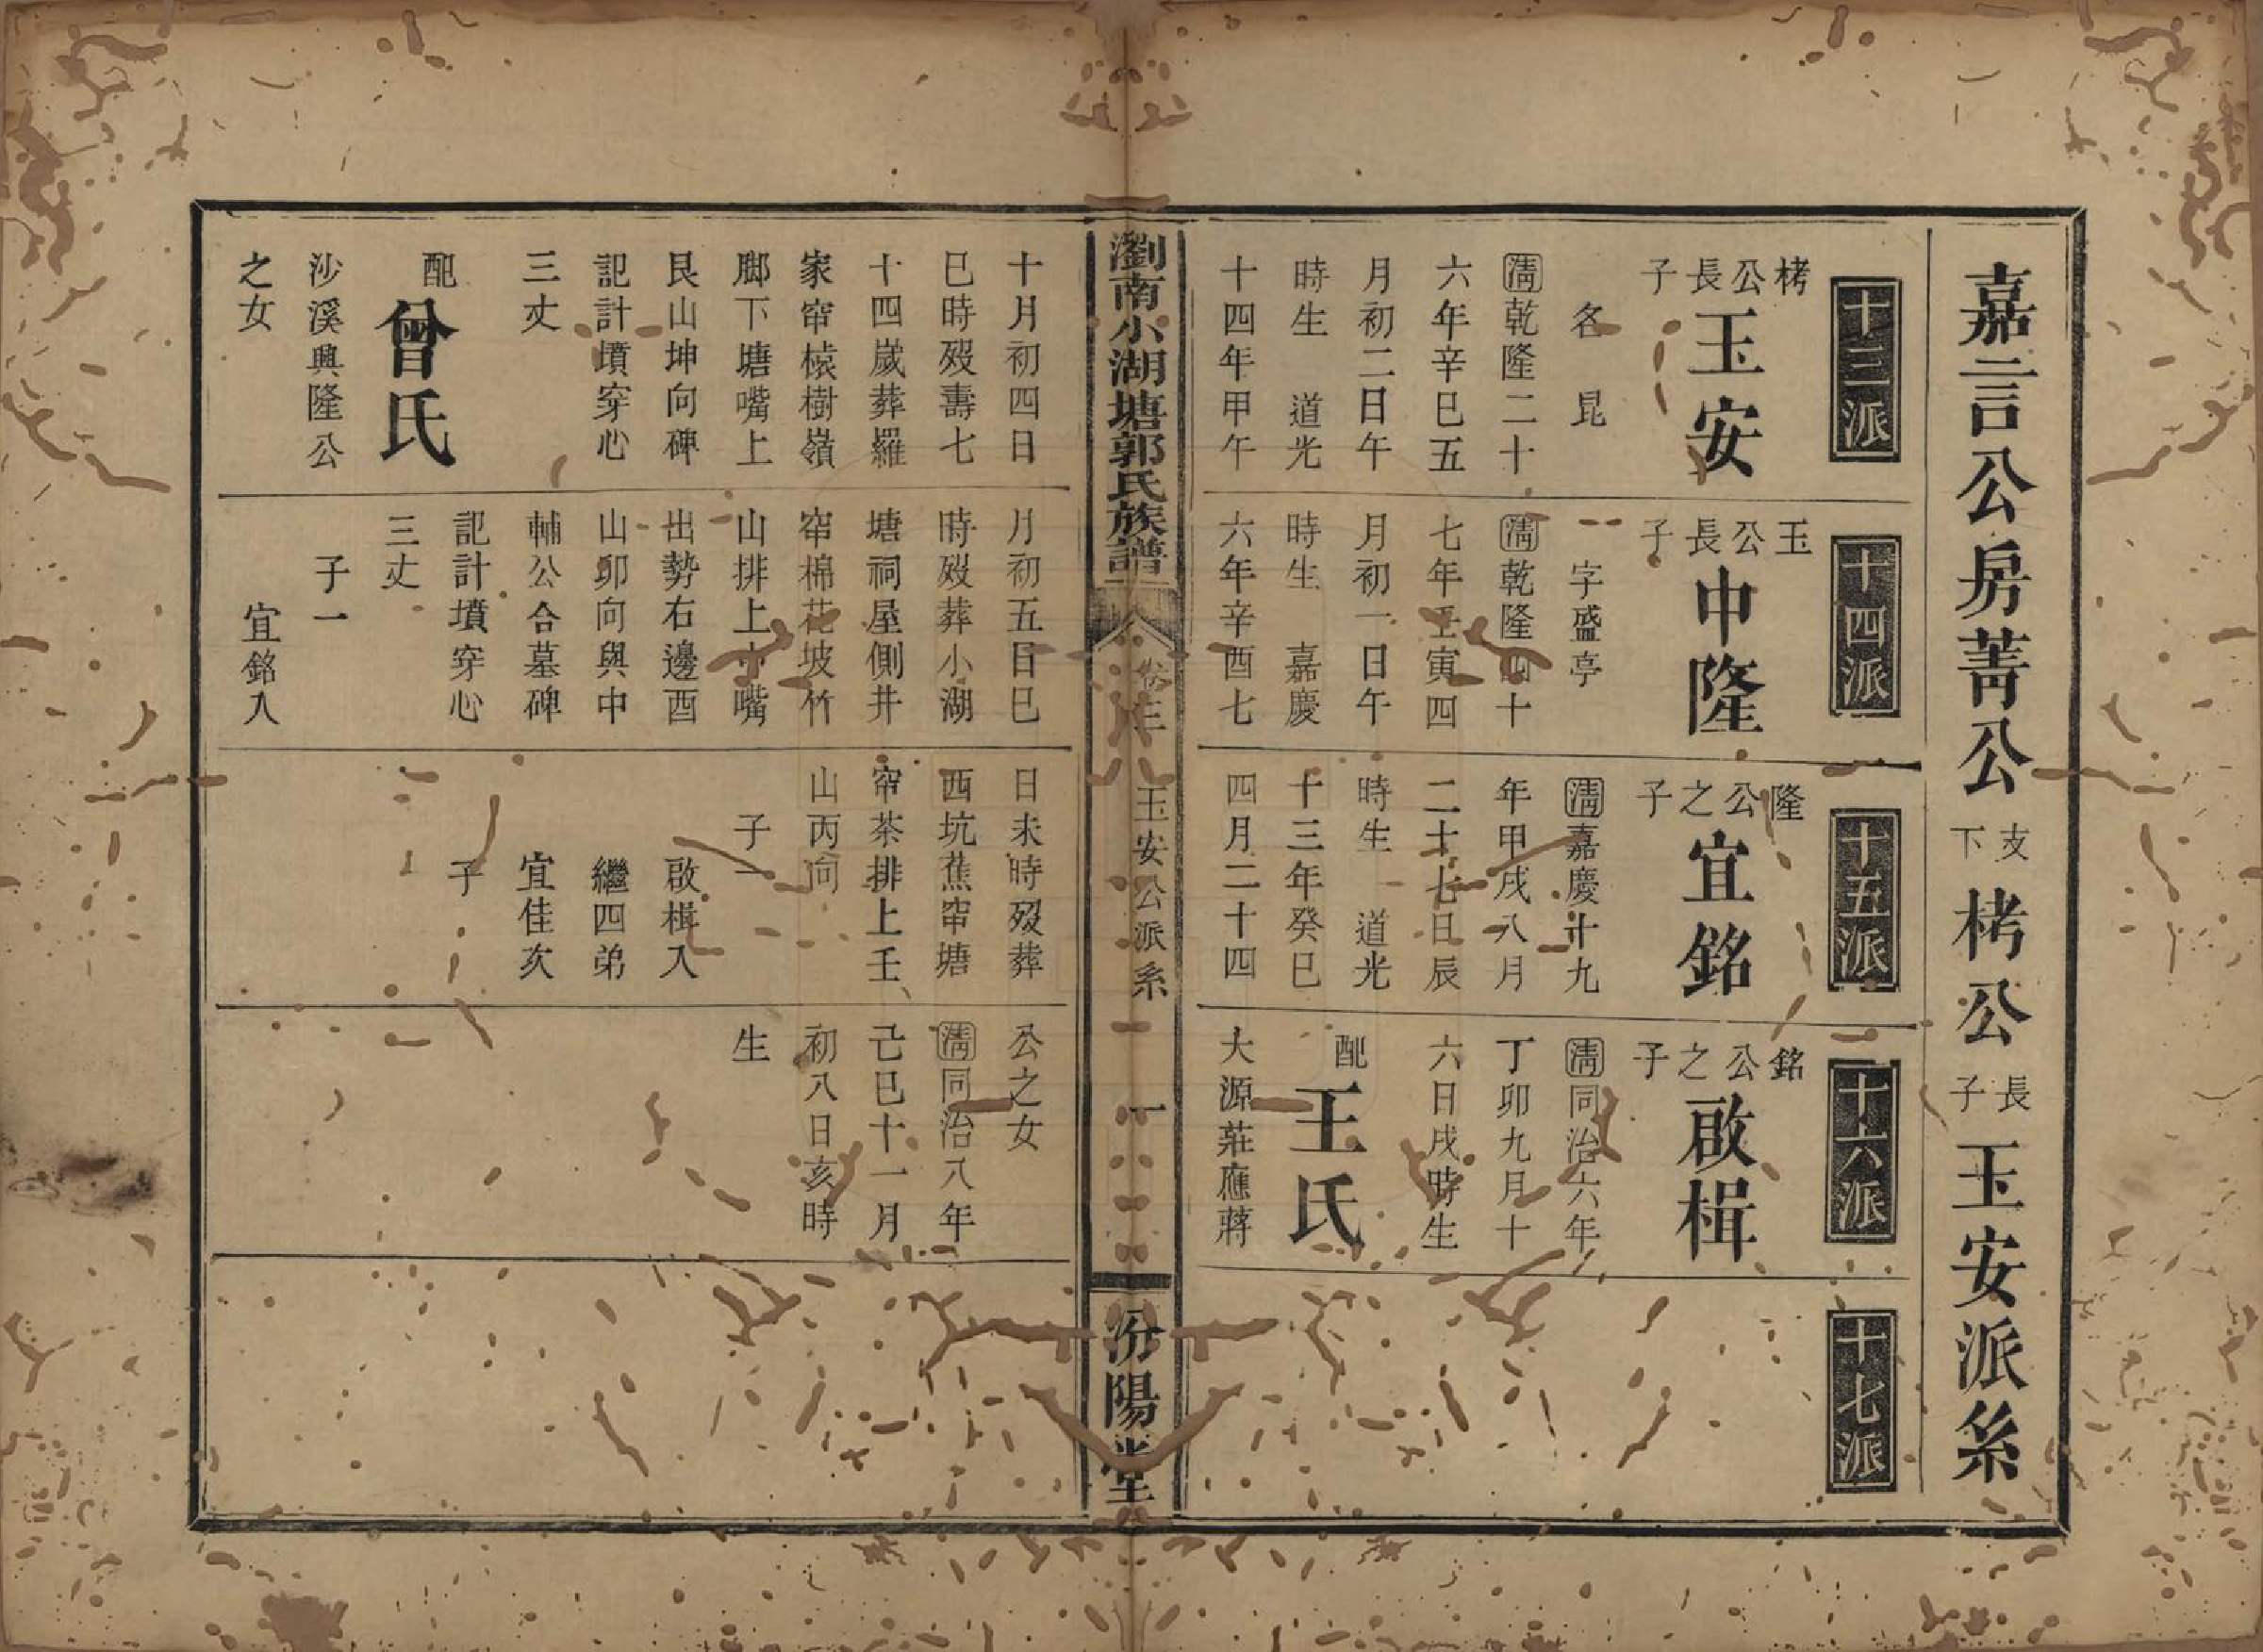 嘉言公房菁公支下栲公長子玉安派系
十三派
栲公長子玉安
名昆
清乾隆二十
六年辛巳五
月初二日午
時生 道光
十四年甲午
十四派
玉公長子申隆
字盛亭
清乾隆四十
七年壬寅四
月初一日午
時生 嘉慶
六年辛酉七
十五派
隆公之子宜銘
清嘉慶十九
年甲戌八月
二十七日辰
時生 道光
十三年癸巳
四月二十四
十六派
銘公之子啟楫
清同治六年
丁卯九月十
六日戌時生
配王氏
大源莊應蔣
十七派
瀏南小湖塘郭氏族譜
卷三
玉安公派系
一
汾陽堂
十月初四日
巳時歿壽七
十四歲葬羅
家窂榬樹嶺
脚下塘嘴上
艮山坤向碑
記計墳穿心
三丈
配曾氏
沙溪興隆公
之女
月初五日巳
時歿葬小湖
塘祠屋側井
窂棉花坡竹
山排上小嘴
出勢右邊酉
山卯向與中
輔公合墓碑
記計墳穿心
三丈
子一
宜銘入
日未時歿葬
西坑蕉窂塘
窂茶排上壬
山丙向
子一
啟楫入
繼四弟
宜佳次
子
公之女
清同治八年
己巳十一月
初八日亥時
生